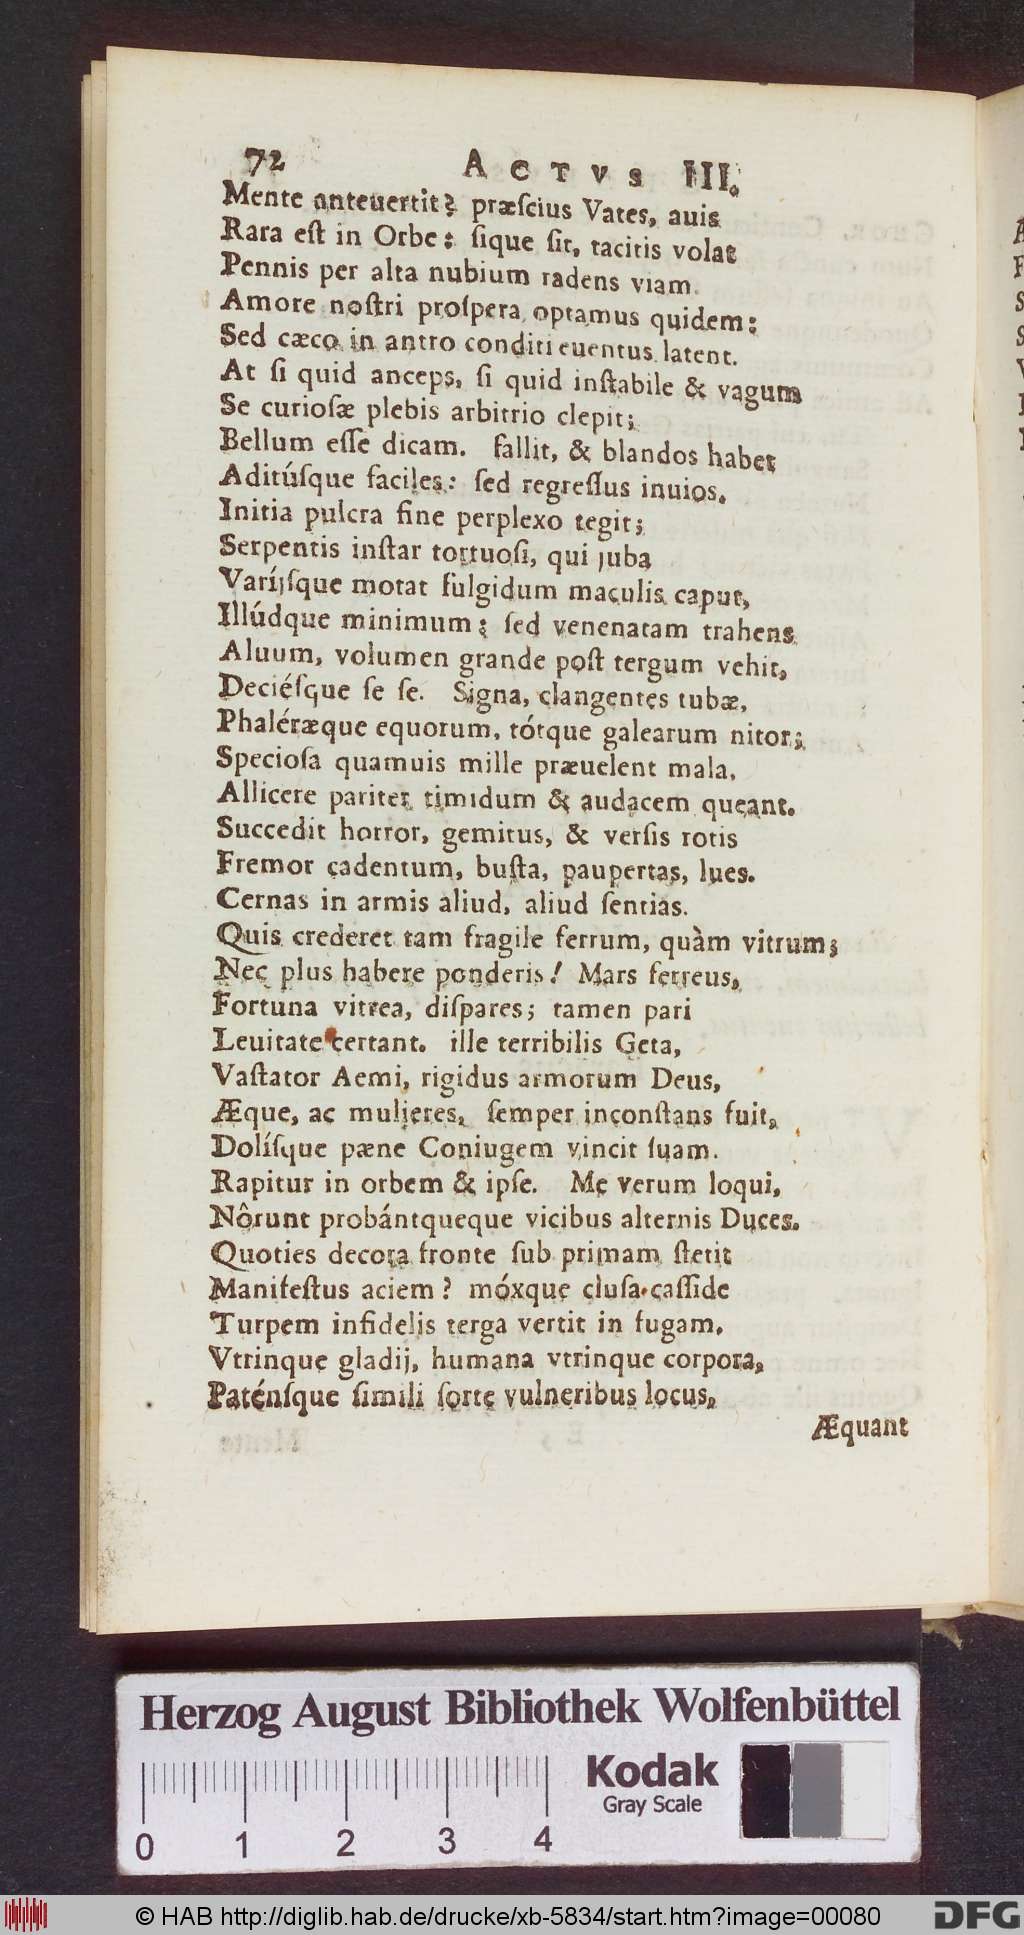 72 ACTVS III.
Mente anteuertit? præſcius Vates, auis
Rara eſt in Orbe: ſique ſit, tacitis volat
Pennis per alta nubium radens viam.
Amore noſtri proſpera optamus quidem:
Sed cæco in antro conditi euentus latent.
At ſi quid anceps, ſi quid inſtabile & vagum
Se curioſæ plebis arbitrio clepit;
Bellum eſſe dicam. fallit, & blandos habet
Aditúſque faciles: ſed regreſſus inuios.
Initia pulcra fine perplexo tegit;
Serpentis inſtar tortuoſi, qui juba
Varijſque motat fulgidum maculis caput,
Illúdque minimum; ſed venenatam trahens
Aluum, volumen grande poſt tergum vehit,
Deciéſque ſe ſe. Signa, clangentes tubæ,
Phaléræque equorum, tótque galearum nitor;
Specioſa quamuis mille præuelent mala,
Allicere pariter timidum & audacem queant.
Succedit horror, gemitus, & verſis rotis
Fremor cadentum, buſta, paupertas, lues.
Cernas in armis aliud, aliud ſentias.
Quis crederet tam fragile ferrum, quàm vitrum;
Nec plus habere ponderis! Mars ferreus,
Fortuna vitrea, diſpares; tamen pari
Leuitate certant. ille terribilis Geta,
Vaſtator Aemi, rigidus armorum Deus,
Æque, ac mulieres, ſemper inconſtans fuit,
Dolíſque pæne Coniugem vincit ſuam.
Rapitur in orbem & ipſe. Me verum loqui,
Nôrunt probántqueque vicibus alternis Duces.
Quoties decora fronte ſub primam ſtetit
Manifeſtus aciem? móxque cluſa caſſide
Turpem infidelis terga vertit in fugam.
Vtrinque gladij, humana vtrinque corpora,
Paténſque ſimili ſorte vulneribus locus,
Æquant
Herzog August Bibliothek Wolfenbüttel
Kodak
Gray Scale
0 1 2 3 4
© HAB http://diglib.hab.de/drucke/xb-5834/start.htm?image=00080
DFG